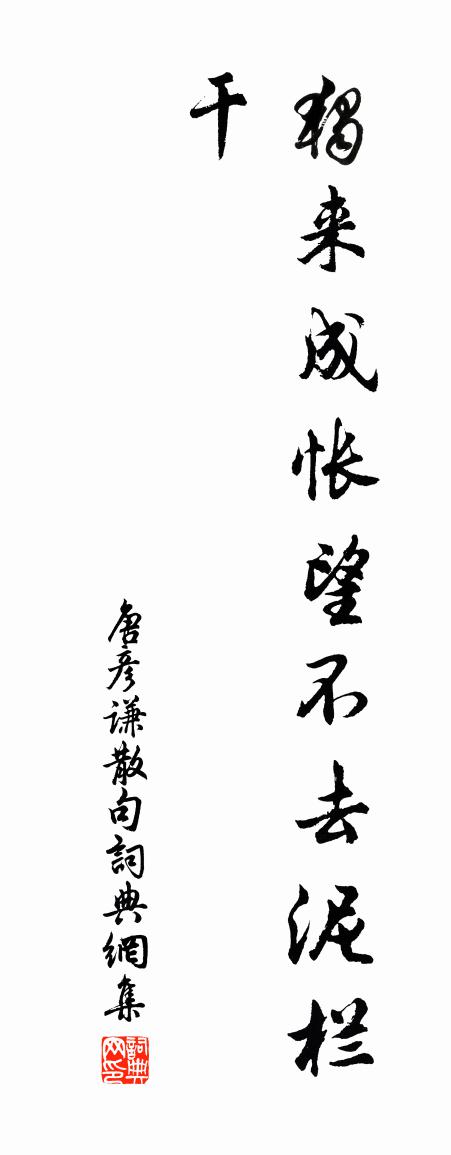 独来成怅望不去泥栏
干
唐彦谦散句詞典網集
詞典网印